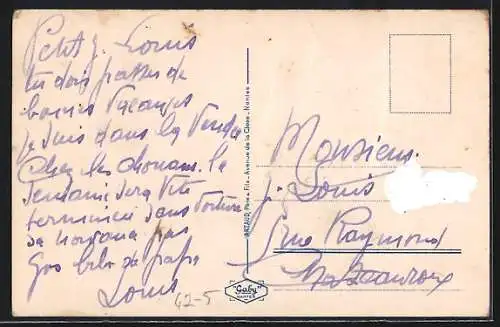 Petit J. Louis
tu dois passer de
bonnes vacances
je suis dans la Vendée
chez les chouans. la
semaine sera vite
terminée sans voiture
sa
pas
Gros de papa
Louis
42-5
ARTAUD, Père & Fils - Avenue de la Close - Nantes
Gaby
NANTES
Monsieur
J. Louis
Rue Raymond